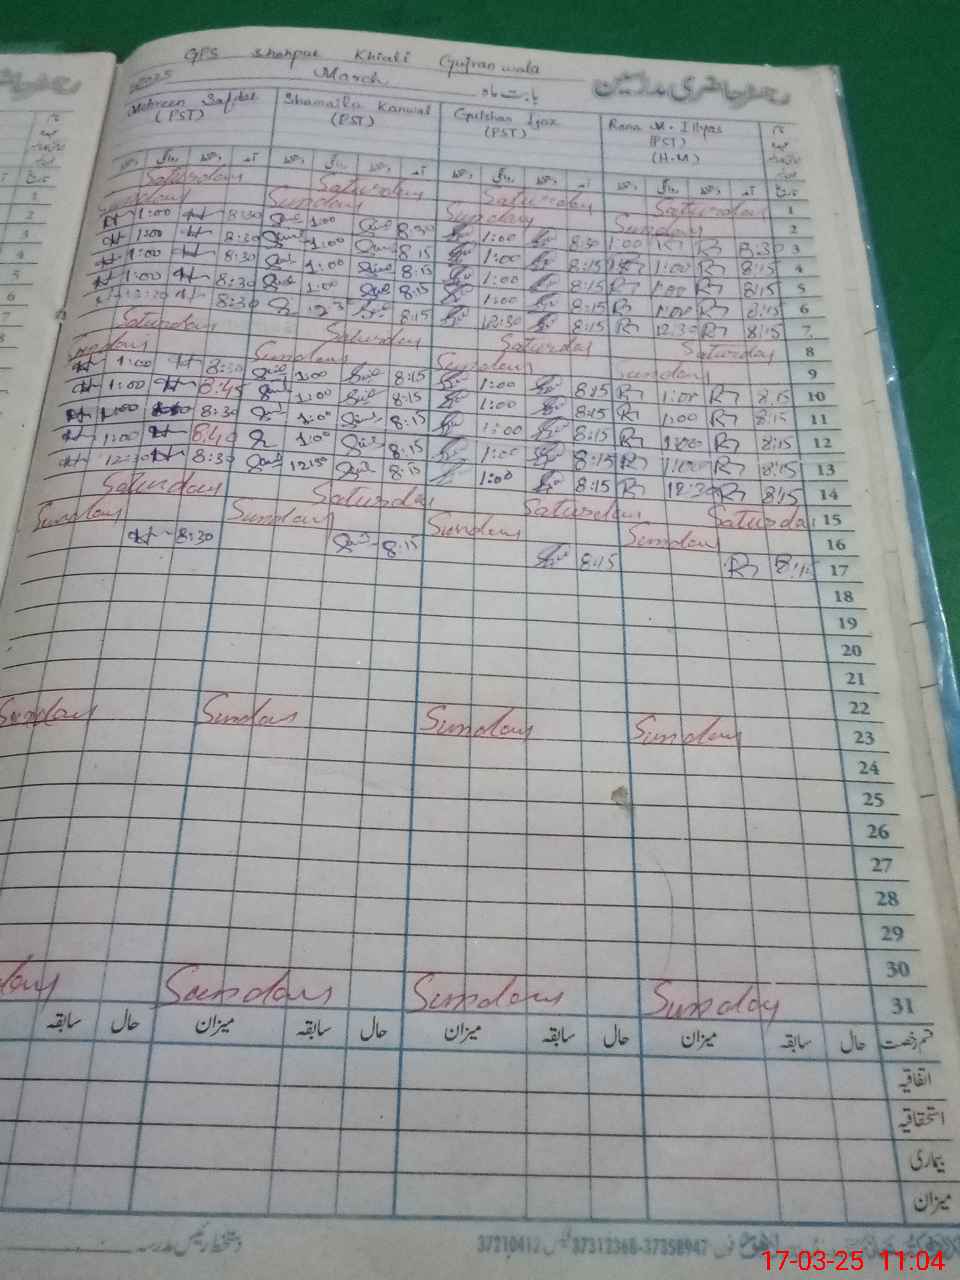 GPS Shahpur Khiali Gujranwala
2025 March بابت ماہ رجسٹر حاضری مدرسین
Mehreen Safdar Shamaila Kanwal Gulshan Ijaz Rana M. Illyas
(PST) (PST) (PST) (PST)
(H.M)
Saturday Saturday Saturday Saturday 1
Sunday Sunday Sunday Sunday 2
1:00 8:30 1:00 8:30 1:00 8:30 1:00 8:30 3
1:00 8:30 1:00 8:15 1:00 8:15 1:00 8:15 4
1:00 8:30 1:00 8:15 1:00 8:15 1:00 8:15 5
1:00 8:30 1:00 8:15 1:00 8:15 1:00 8:15 6
8:30 8:15 12:30 8:15 12:30 8:15 7
Saturday Saturday Saturday Saturday 8
Sunday Sunday Sunday Sunday 9
1:00 8:30 1:00 8:15 1:00 8:15 1:00 8:15 10
1:00 8:45 1:00 8:15 1:00 8:15 1:00 8:15 11
1:00 8:30 1:00 8:15 1:00 8:15 1:00 8:15 12
1:00 8:40 1:00 8:15 1:00 8:15 1:00 8:15 13
12:30 8:30 8:15 1:00 8:15 12:30 8:15 14
Saturday Saturday Saturday Saturday 15
Sunday Sunday Sunday Sunday 16
8:30 8:15 8:15 8:15 17
18
19
20
21
22
Sunday Sunday Sunday Sunday 23
24
25
26
27
28
29
30
Sunday Sunday Sunday 31
قسم رخصت حال سابقہ میزان حال سابقہ میزان حال سابقہ میزان حال سابقہ
اتفاقیہ
استحقاقیہ
بیماری
میزان
دستخط رئیس مدرسہ
فون 37312368-37358947 فیکس 37210412
17-03-25 11:04